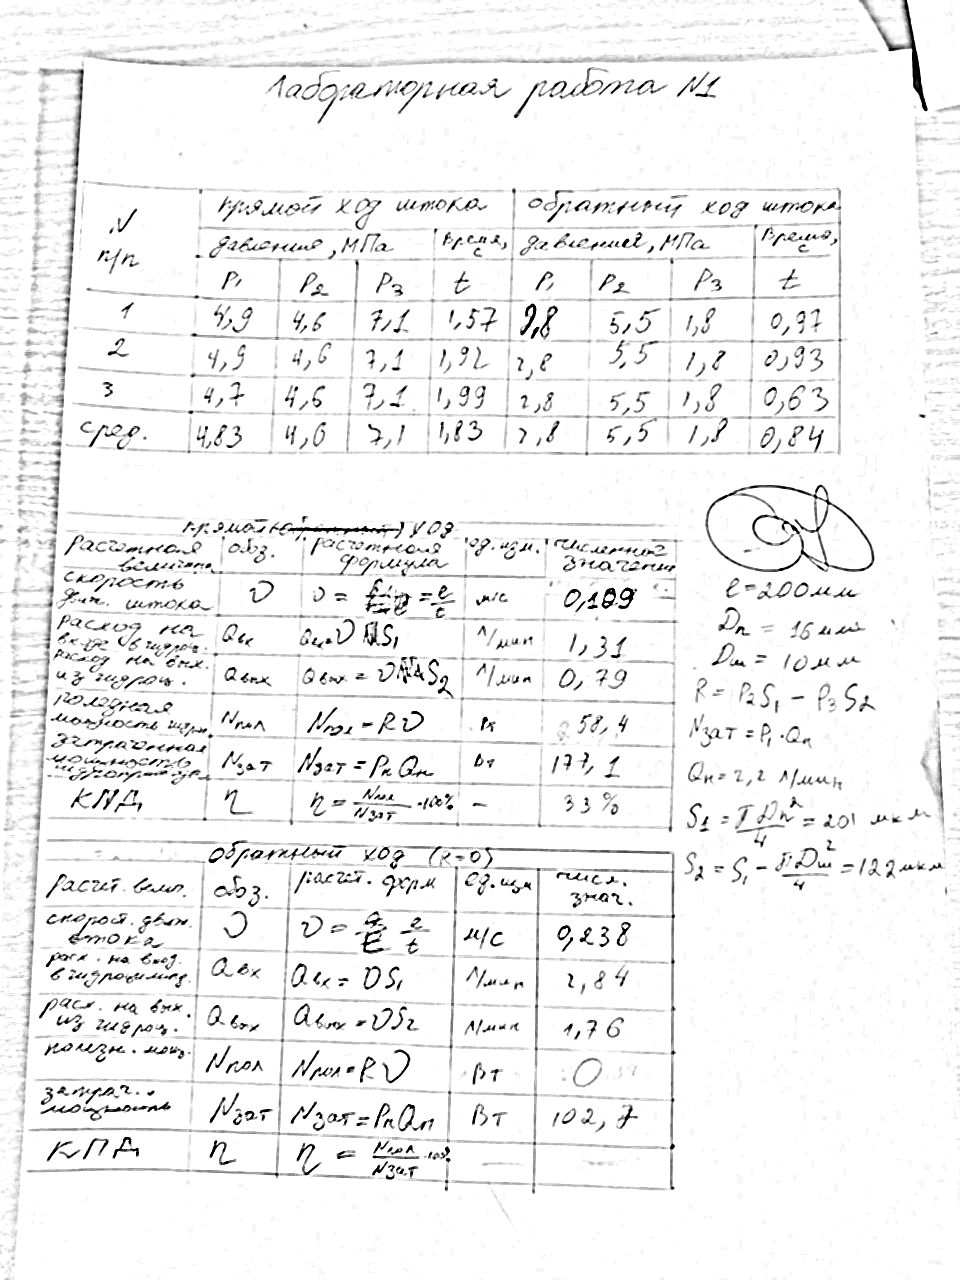 Лабораторная работа N1
N п/п прямой ход штока обратный ход штока
давления, МПа Время, с давления, МПа Время, с
P1 P2 P3 t P1 P2 P3 t
1 4,9 4,6 7,1 1,57 2,8 5,5 1,8 0,97
2 4,9 4,6 7,1 1,92 2,8 5,5 1,8 0,93
3 4,7 4,6 7,1 1,99 2,8 5,5 1,8 0,63
сред. 4,83 4,6 7,1 1,83 2,8 5,5 1,8 0,84
прямой ход
Расчетная величина обоз. расчетная формула ед. изм. численное значение
скорость движ. штока υ υ = = e/t м/с 0,109
Расход на входе в гидроц. Qвх Qвх = υ S1 л/мин 1,31
расход на вых. из гидроц. Qвых Qвых = υ S2 л/мин 0,79
полезная мощность Nпол Nпол = Rυ Вт 58,4
затраченная мощность Nзат Nзат = PнQн Вт 177,1
КПД η η = Nпол/Nзат ·100% – 33%
e = 200мм
Dп = 16 мм
Dш = 10 мм
R = P2S1 – P3S2
Nзат = P1·Qн
Qн = 2,2 л/мин
S1 = πDп²/4 = 201 мкм
S2 = S1 – πDш²/4 = 122 мкм
обратный ход (R=0)
расчет. велич. обоз. расчет. форм ед. изм числ. знач.
скорост. движ. штока υ υ = e/t м/с 0,238
расх. на вход. в гидроцилинд. Qвх Qвх = υS1 л/мин 2,84
расх. на вых. из гидроц. Qвых Qвых = υS2 л/мин 1,76
полезн. мощ. Nпол Nпол = Rυ Вт 0
затрач. мощность Nзат Nзат = PнQн Вт 102,7
КПД η η = Nпол/Nзат ·100% —